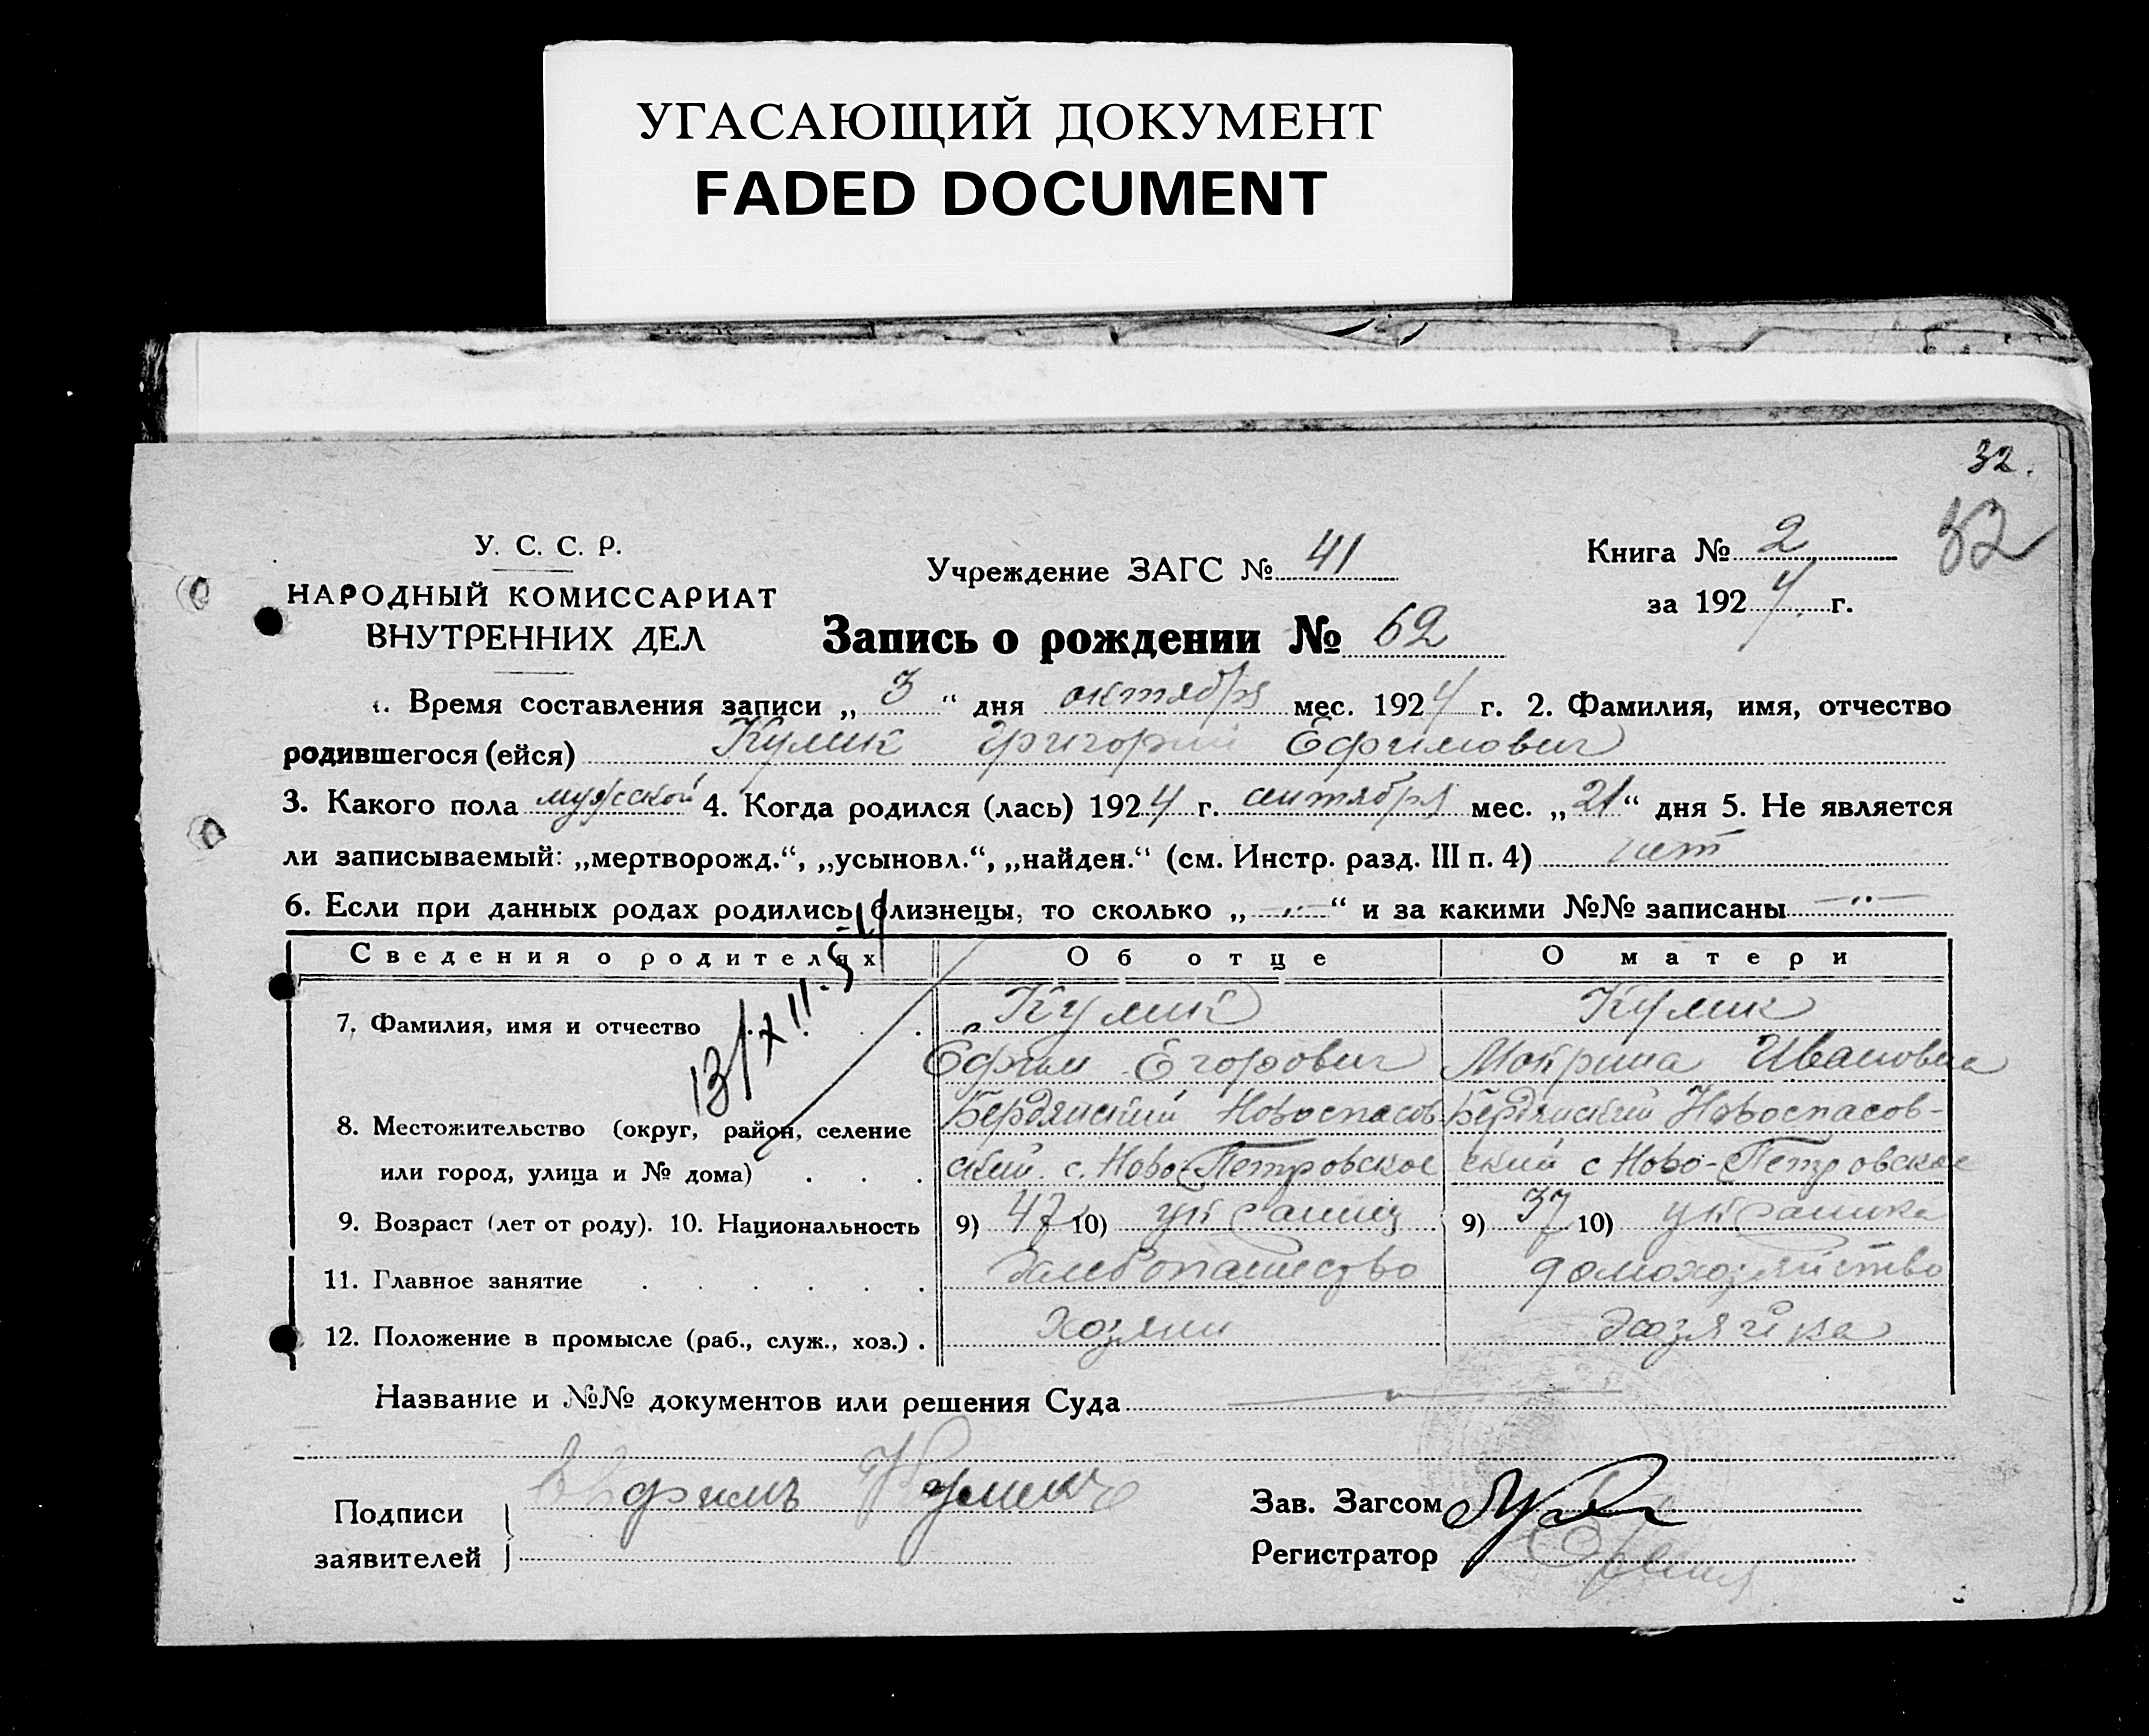 УГАСАЮЩИЙ ДОКУМЕНТ
FADED DOCUMENT
32.
32
У. С. С. Р.
НАРОДНЫЙ КОМИССАРИАТ
ВНУТРЕННИХ ДЕЛ
Учреждение ЗАГС № 41
Книга № 2
за 1924 г.
Запись о рождении № 62
1. Время составления записи „ 3 “ дня октября мес. 1924 г. 2. Фамилия, имя, отчество
родившегося (ейся) Кулик Григорий Ефимович
3. Какого пола мужской 4. Когда родился (лась) 1924 г. сентября мес. „ 21 “ дня 5. Не является
ли записываемый: „мертворожд.“, „усыновл.“, „найден.“ (см. Инстр. разд. III п. 4) нет
6. Если при данных родах родились близнецы, то сколько „ —„— “ и за какими №№ записаны —„—
Сведения о родителях Об отце О матери
7. Фамилия, имя и отчество Кулик Кулик
Ефим Егорович Мокрина Ивановна
13/XII-
8. Местожительство (округ, район, селение Бердянский Новоспасов- Бердянский Новоспасов-
или город, улица и № дома) ский с. Ново-Петровское ский с Ново-Петровское
9. Возраст (лет от роду). 10. Национальность 9) 47 10) украинец 9) 37 10) украинка
11. Главное занятие хлебопашество домохозяйство
12. Положение в промысле (раб., служ., хоз.) хозяин хозяйка
Название и №№ документов или решения Суда —„—
Подписи
заявителей
Ефимъ Кулик
Зав. Загсом
Регистратор